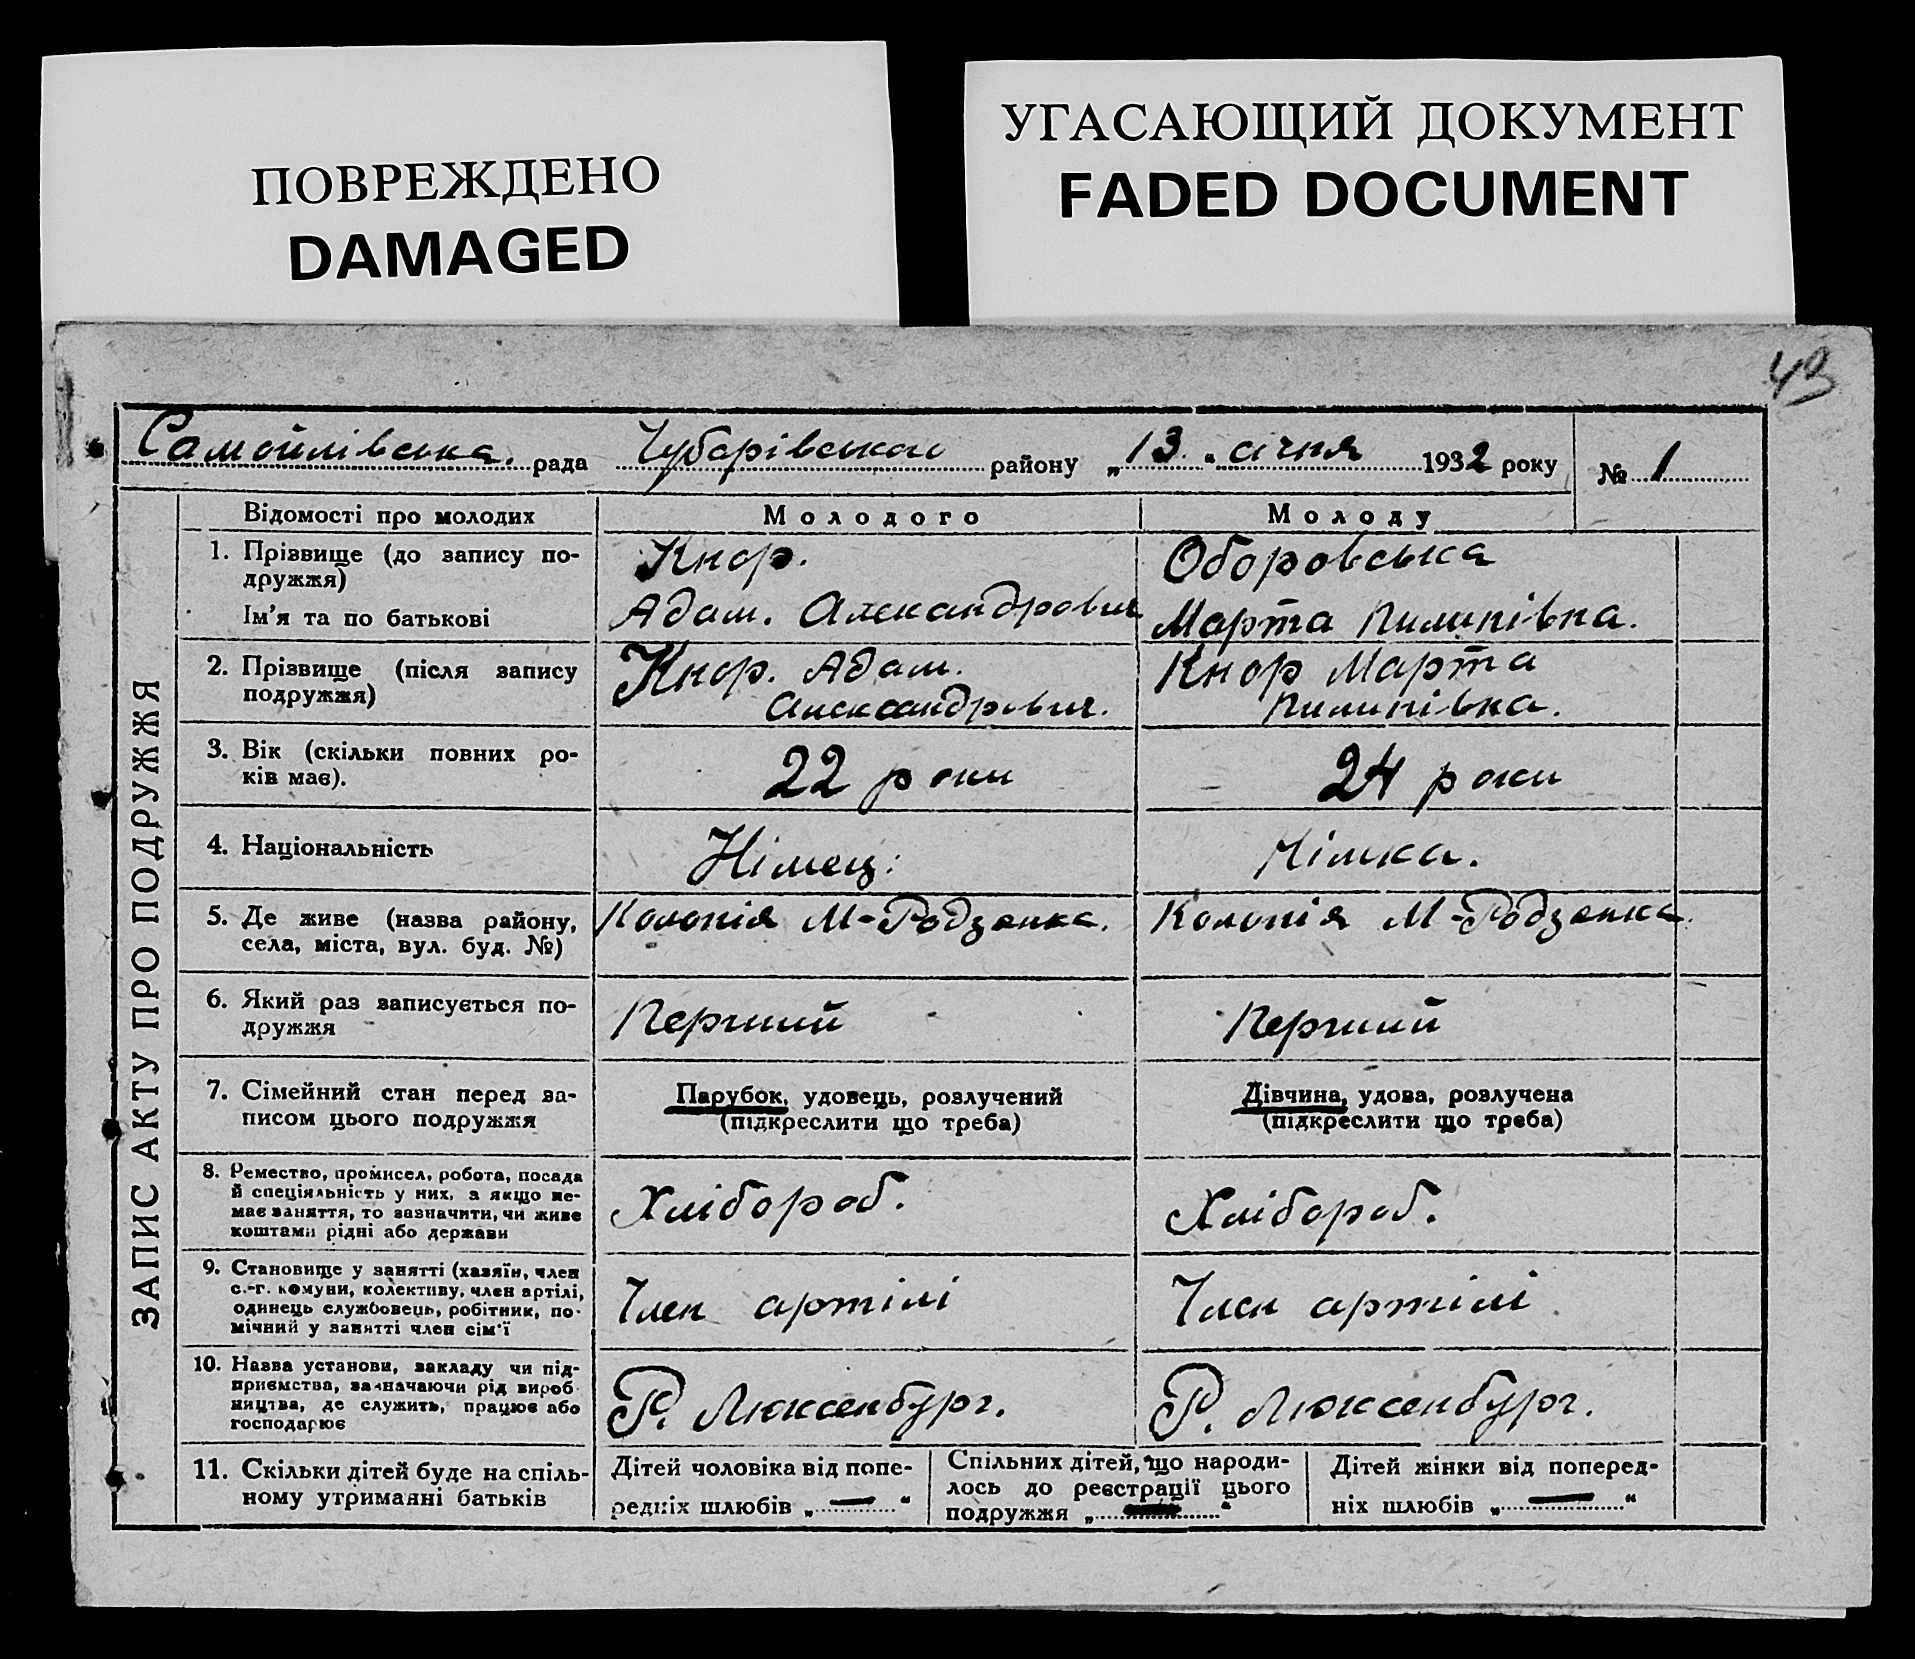 ПОВРЕЖДЕНО
DAMAGED
УГАСАЮЩИЙ ДОКУМЕНТ
FADED DOCUMENT
43
Самойлівська. рада Чубарівського району „13.“ січня 1932 року № 1
ЗАПИС АКТУ ПРО ПОДРУЖЖЯ
Відомості про молодих Молодого Молоду
1. Прізвище (до запису по-
дружжя)
Кнор. Оборовська
Ім’я та по батькові Адам. Александрович Марта Пилипівна.
2. Прізвище (після запису
подружжя)
Кнор. Адам.
Александрович.
Кнор Марта
Пилипівна.
3. Вік (скільки повних ро-
ків має).
22 роки 24 роки
4. Національність Німец. Німка.
5. Де живе (назва району,
села, міста, вул. буд. №)
Колонія М-Родзенка. Колонія М-Родзенка.
6. Який раз записується по-
дружжя
Перший Перший
7. Сімейний стан перед за-
писом цього подружжя
Парубок, удовець, розлучений
(підкреслити що треба)
Дівчина, удова, розлучена
(підкреслити що треба)
8. Ремество, промисел, робота, посада
й спеціяльність у них, а якщо не-
має заняття, то зазначити, чи живе
коштами рідні або держави
Хлібороб. Хлібороб.
9. Становище у занятті (хазяїн, член
с.-г. комуни, колективу, член артілі,
одинець службовець, робітник, по-
мічний у занятті член сім’ї
Член артілі Член артілі
10. Назва установи, закладу чи під-
приємства, зазначаючи рід вироб-
ництва, де служить, працює або
господарює
Р. Люксенбург. Р. Люксенбург.
11. Скільки дітей буде на спіль-
ному утриманні батьків
Дітей чоловіка від попе-
редніх шлюбів „—“
Спільних дітей, що народи-
лось до реєстрації цього
подружжя „—“
Дітей жінки від поперед-
ніх шлюбів „—“